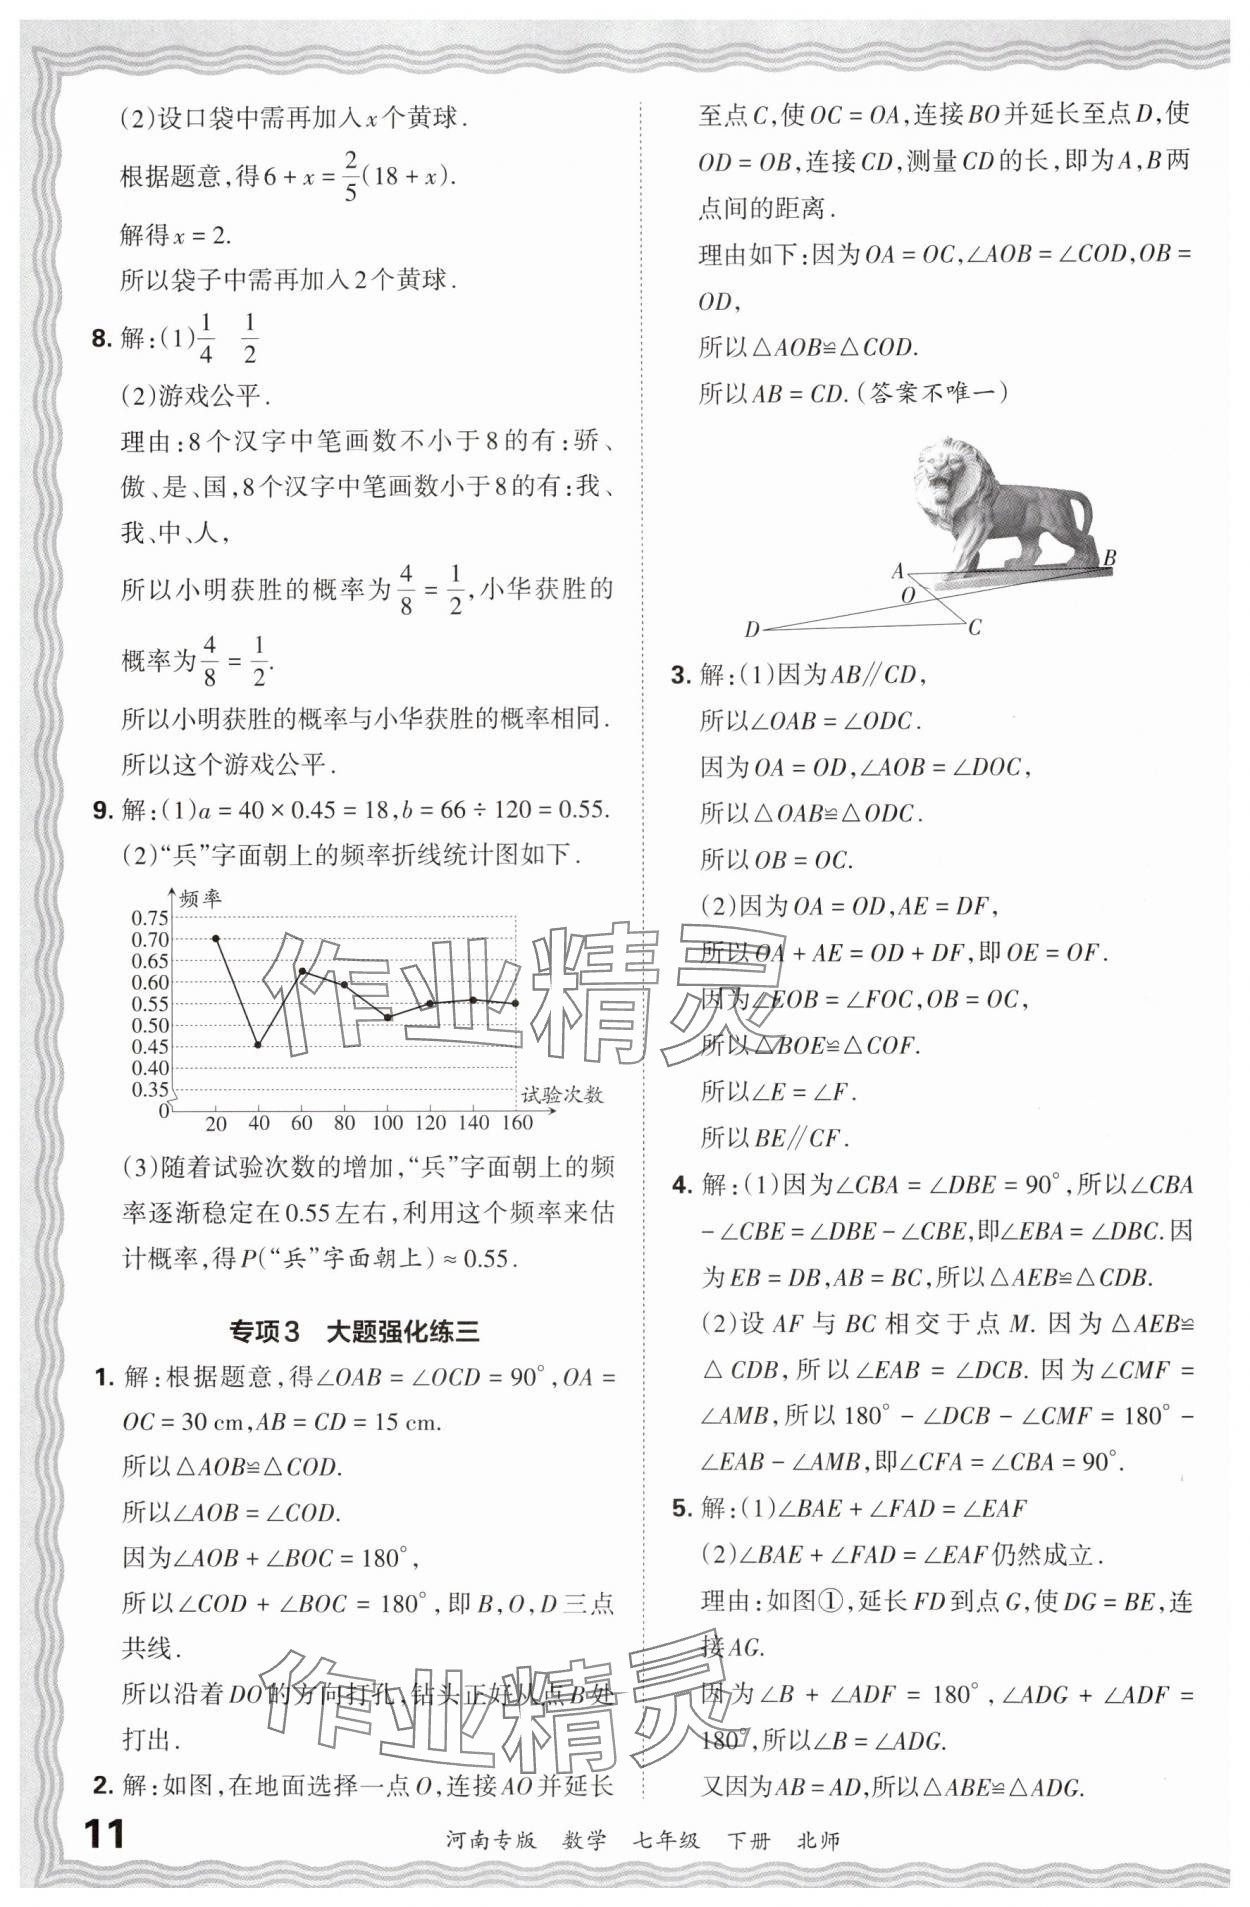 (2)设口袋中需再加入x个黄球.
根据题意,得6+x=2/5(18+x).
解得x=2.
所以袋子中需再加入2个黄球.
8. 解:(1)1/4 1/2
(2)游戏公平.
理由:8个汉字中笔画数不小于8的有:骄、
傲、是、国,8个汉字中笔画数小于8的有:我、
我、中、人,
所以小明获胜的概率为4/8=1/2,小华获胜的
概率为4/8=1/2.
所以小明获胜的概率与小华获胜的概率相同.
所以这个游戏公平.
9. 解:(1)a=40×0.45=18,b=66÷120=0.55.
(2)“兵”字面朝上的频率折线统计图如下.
频率
0.75
0.70
0.65
0.60
0.55
0.50
0.45
0.40
0.35
0
试验次数
20 40 60 80 100 120 140 160
(3)随着试验次数的增加,“兵”字面朝上的频
率逐渐稳定在0.55左右,利用这个频率来估
计概率,得P(“兵”字面朝上)≈0.55.
专项3 大题强化练三
1. 解:根据题意,得∠OAB=∠OCD=90°,OA=
OC=30 cm,AB=CD=15 cm.
所以△AOB≌△COD.
所以∠AOB=∠COD.
因为∠AOB+∠BOC=180°,
所以∠COD+∠BOC=180°,即B,O,D三点
共线.
所以沿着DO的方向打孔,钻头正好从点B处
打出.
2. 解:如图,在地面选择一点O,连接AO并延长
至点C,使OC=OA,连接BO并延长至点D,使
OD=OB,连接CD,测量CD的长,即为A,B两
点间的距离.
理由如下:因为OA=OC,∠AOB=∠COD,OB=
OD,
所以△AOB≌△COD.
所以AB=CD.(答案不唯一)
A
B
O
D
C
3. 解:(1)因为AB∥CD,
所以∠OAB=∠ODC.
因为OA=OD,∠AOB=∠DOC,
所以△OAB≌△ODC.
所以OB=OC.
(2)因为OA=OD,AE=DF,
所以OA+AE=OD+DF,即OE=OF.
因为∠EOB=∠FOC,OB=OC,
所以△BOE≌△COF.
所以∠E=∠F.
所以BE∥CF.
4. 解:(1)因为∠CBA=∠DBE=90°,所以∠CBA
-∠CBE=∠DBE-∠CBE,即∠EBA=∠DBC.因
为EB=DB,AB=BC,所以△AEB≌△CDB.
(2)设AF与BC相交于点M.因为△AEB≌
△CDB,所以∠EAB=∠DCB.因为∠CMF=
∠AMB,所以180°-∠DCB-∠CMF=180°-
∠EAB-∠AMB,即∠CFA=∠CBA=90°.
5. 解:(1)∠BAE+∠FAD=∠EAF
(2)∠BAE+∠FAD=∠EAF仍然成立.
理由:如图①,延长FD到点G,使DG=BE,连
接AG.
因为∠B+∠ADF=180°,∠ADG+∠ADF=
180°,所以∠B=∠ADG.
又因为AB=AD,所以△ABE≌△ADG.
作业精灵
作业精灵
11
河南专版 数学 七年级 下册 北师